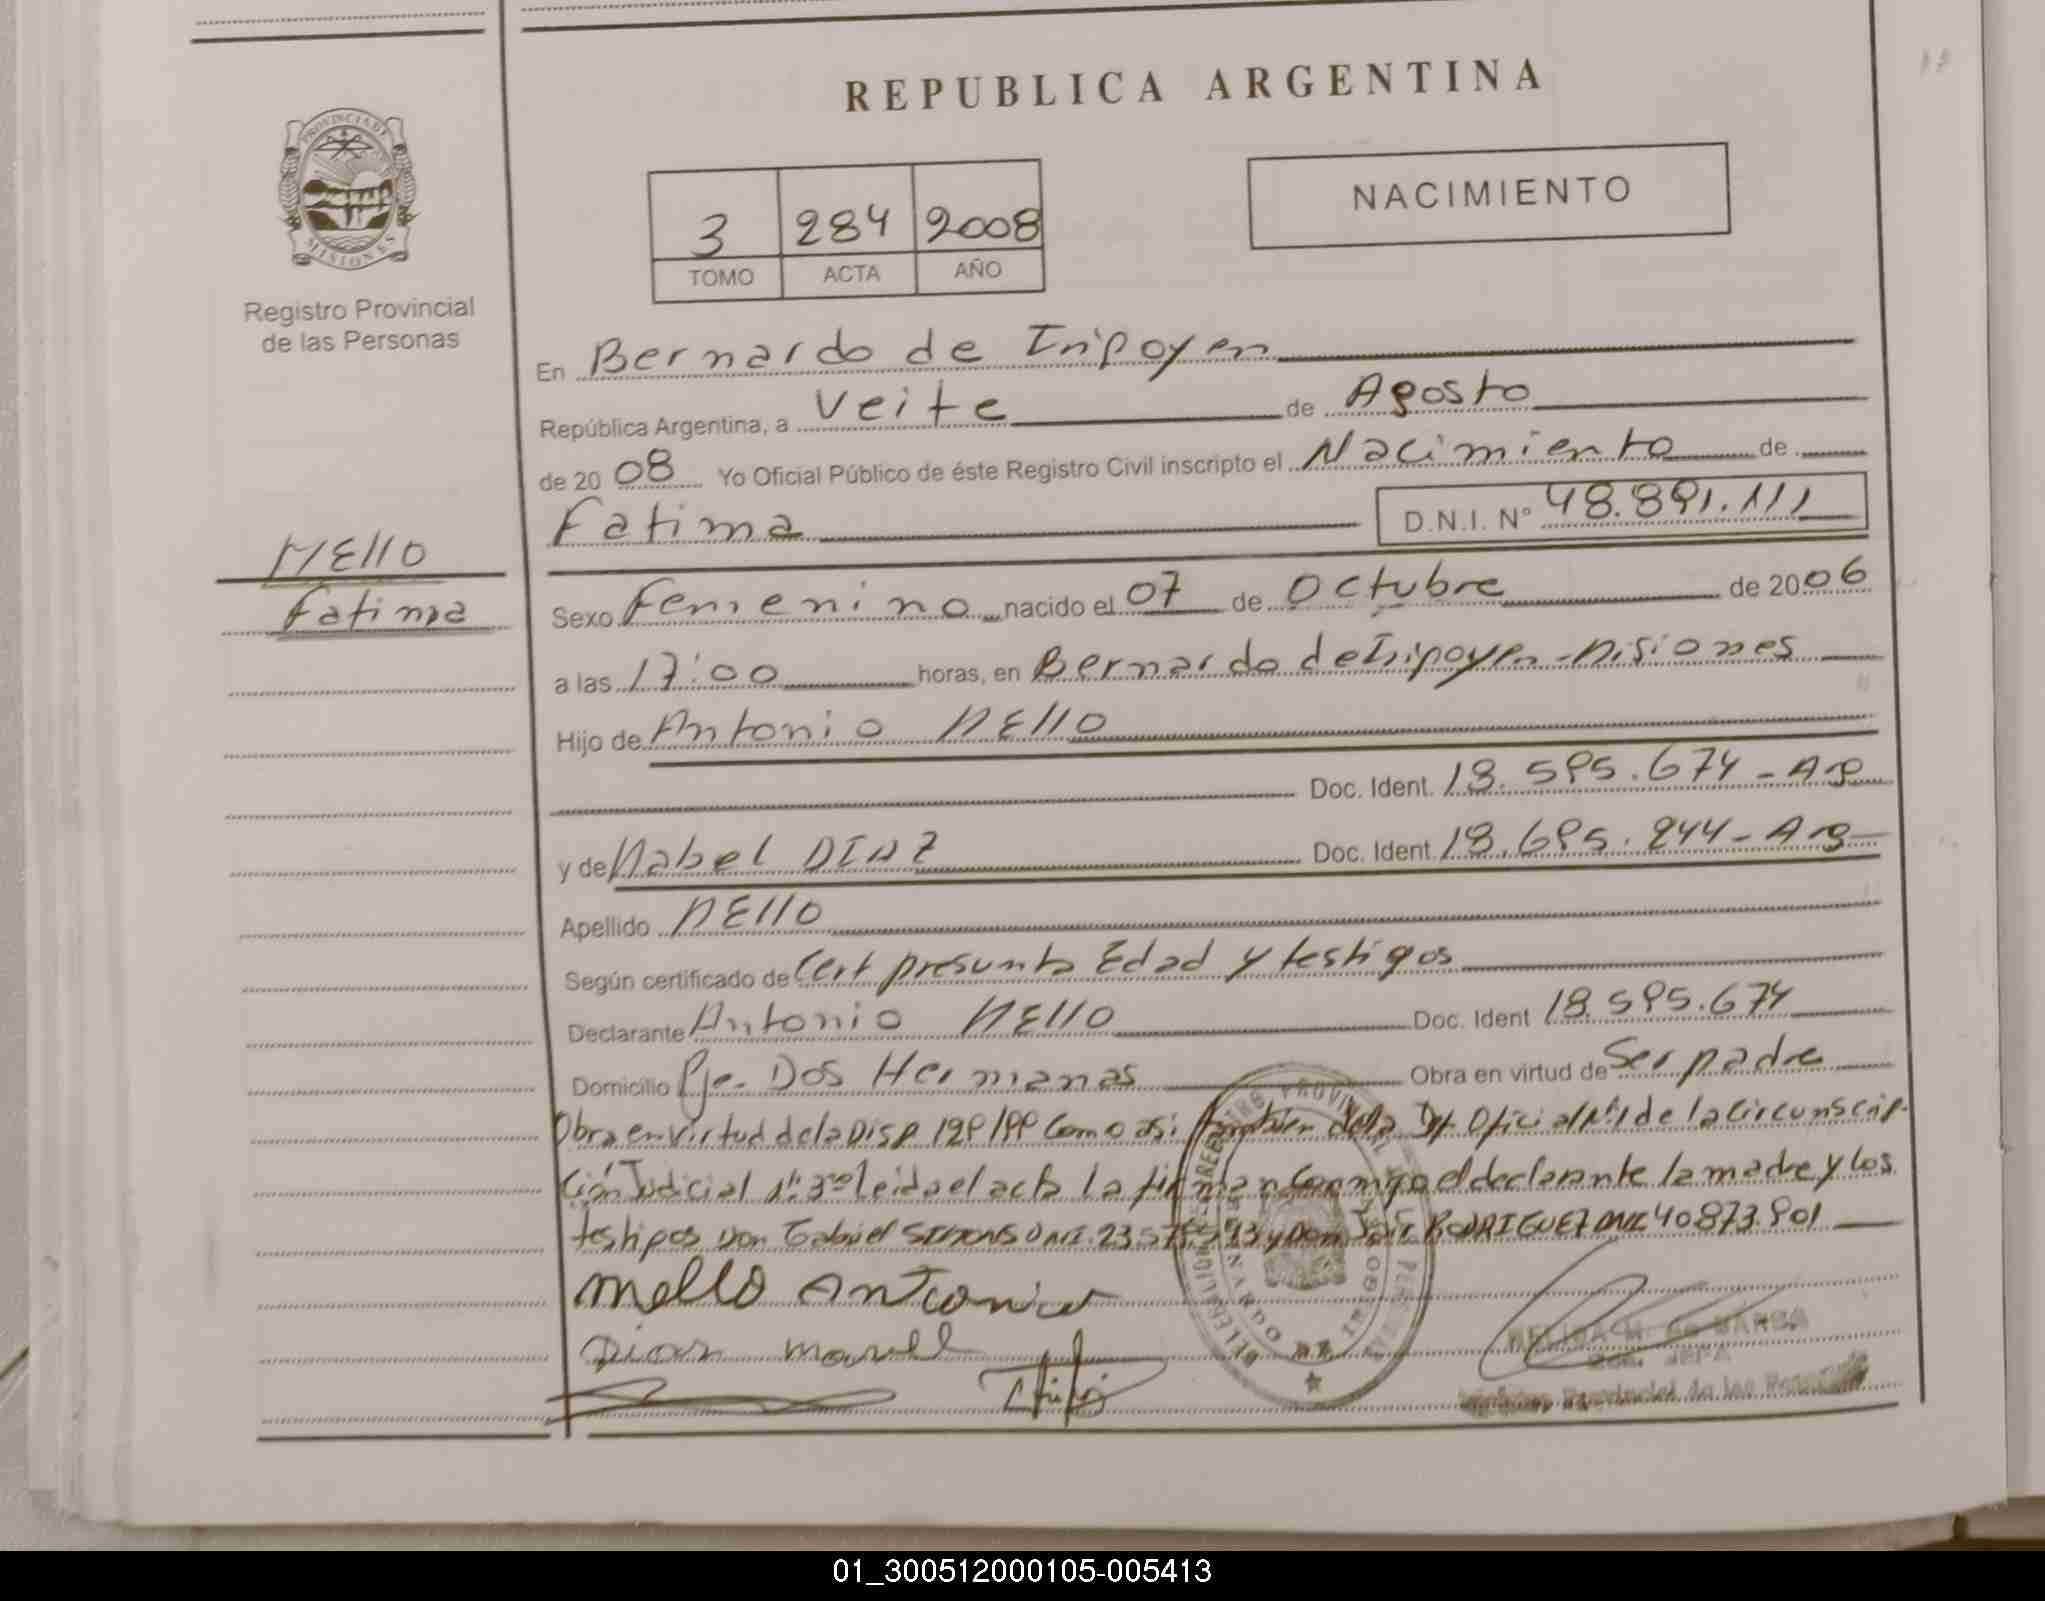 REPUBLICA ARGENTINA
NACIMIENTO
3 284 2008
TOMO ACTA AÑO
PROVINCIA DE
MISIONES
Registro Provincial
de las Personas
MEllo
Fatima
En Bernardo de Irigoyen
República Argentina, a Veite de Agosto
de 2008 Yo Oficial Público de éste Registro Civil inscripto el Nacimiento de
Fatima D.N.I. Nº 48.891.111
Sexo Femenino nacido el 07 de Octubre de 2006
a las 17:00 horas, en Bernardo de Irigoyen - Misiones
Hijo de Antonio MEllo
Doc. Ident. 18.595.674 - Arg
y de Mabel DIAZ Doc. Ident 18.695.244 - Arg
Apellido MEllo
Según certificado de Cert presunta Edad y testigos
Declarante Antonio MEllo Doc. Ident 18.595.674
Domicilio Pje. Dos Hermanas Obra en virtud de Ser padre
Obra en virtud de la Disp 129/99 Como asi también de la Oficial Nº1 de la Circunscrip-
ción Judicial Nº 3 leida el acta la firman Conmigo el declarante la madre y los
testigos Don Gabriel DNI. 23 y Don José RODRIGUEZ DNI 40873.901
Mello Antonio
Dias Mavel